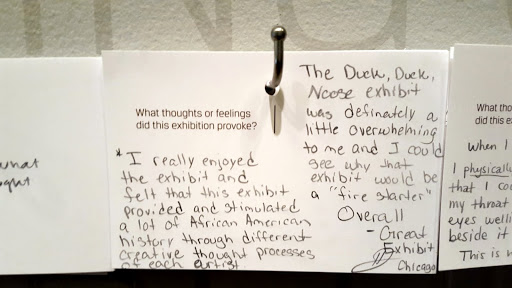 What thoughts or feelings
did this exhibition provoke?
* I really enjoyed
the exhibit and
felt that this exhibit
provided and stimulated
a lot of African American
history through different
creative thought processes
of each artist
The Duck, Duck,
Noose exhibit
was definately a
little overwhelming
to me and I could
see why that
exhibit would be
a "fire starter"
Overall
- Great
Exhibit
Chicago
what
ought
What tho
did this e
When I
I physically
that I co
my throat
eyes welli
beside it
This is w